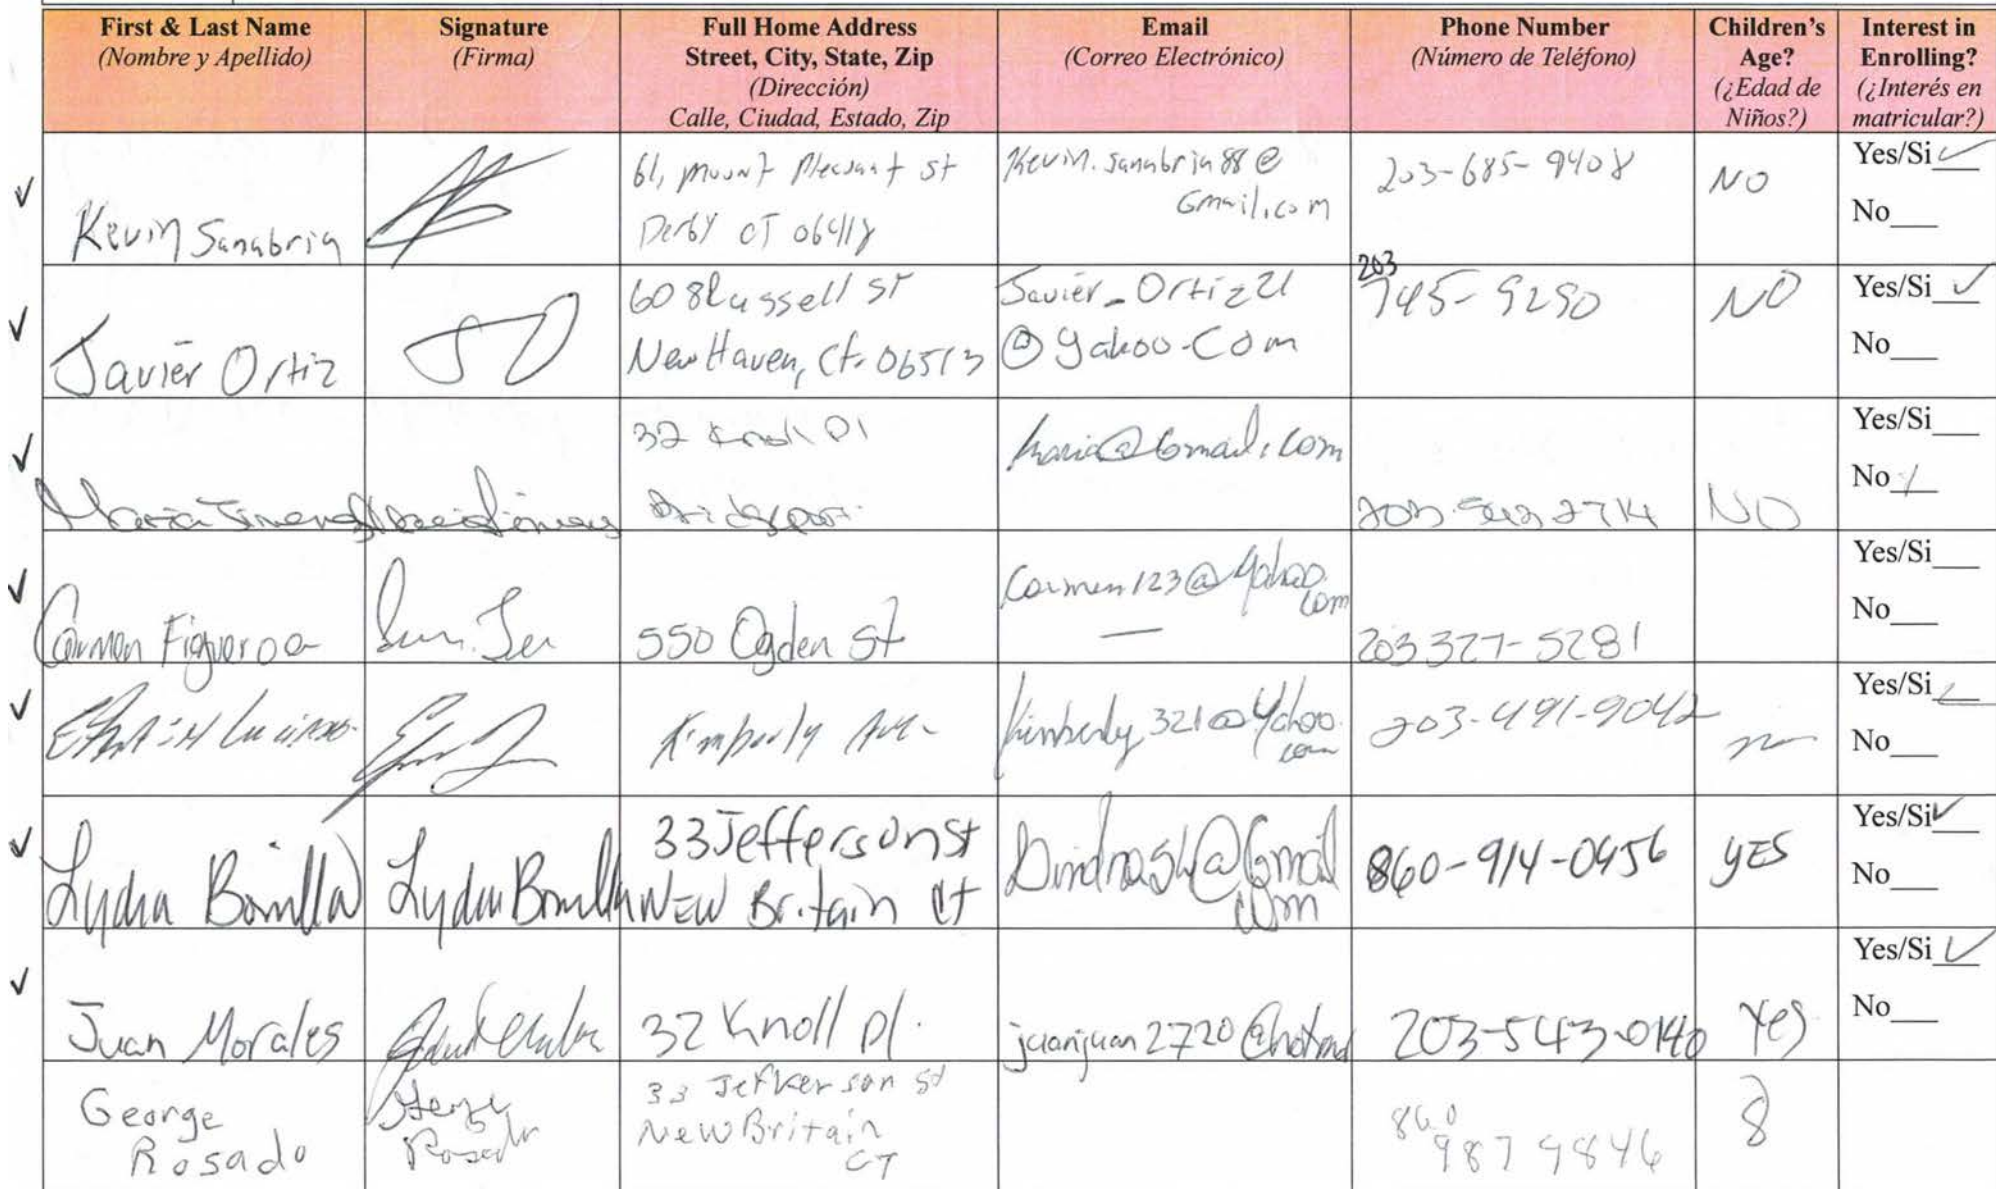 First & Last Name
(Nombre y Apellido)
Signature
(Firma)
Full Home Address
Street, City, State, Zip
(Dirección)
Calle, Ciudad, Estado, Zip
Email
(Correo Electrónico)
Phone Number
(Número de Teléfono)
Children's
Age?
(¿Edad de
Niños?)
Interest in
Enrolling?
(¿Interés en
matricular?)
Kevin Sanabria
61, Mount Pleasant st
Derby CT 06418
Kevin.sanabria88@
Gmail.com
203-685-9408
NO
Yes/Si ✓
No
Javier Ortiz
JO
608 Russell St
New Haven, Ct. 06513
Javier_Ortiz21
@yahoo.Com
203
745-9290
NO
Yes/Si ✓
No
Maria
32 Knoll Pl
maria@Gmail.com
NO
Yes/Si
No
Carmen Figueroa
550 Ogden St
Carmen123@Yahoo.
com
203 327-5281
Yes/Si
No
Kimberly Ave
Kimberly321@Yahoo.
com
203-491-9042
Yes/Si
No
Lydia Bonilla
Lydia Bonilla
33 Jefferson st
NEW Britain Ct
@Gmail
com
860-914-0456
YES
Yes/Si ✓
No
Juan Morales
32 Knoll pl.
juanjuan2720@hotmail
203-543-0140
Yes
Yes/Si ✓
No
George
Rosado
George
Rosado
33 Jefkerson st
New Britain
CT
860
987 9846
8